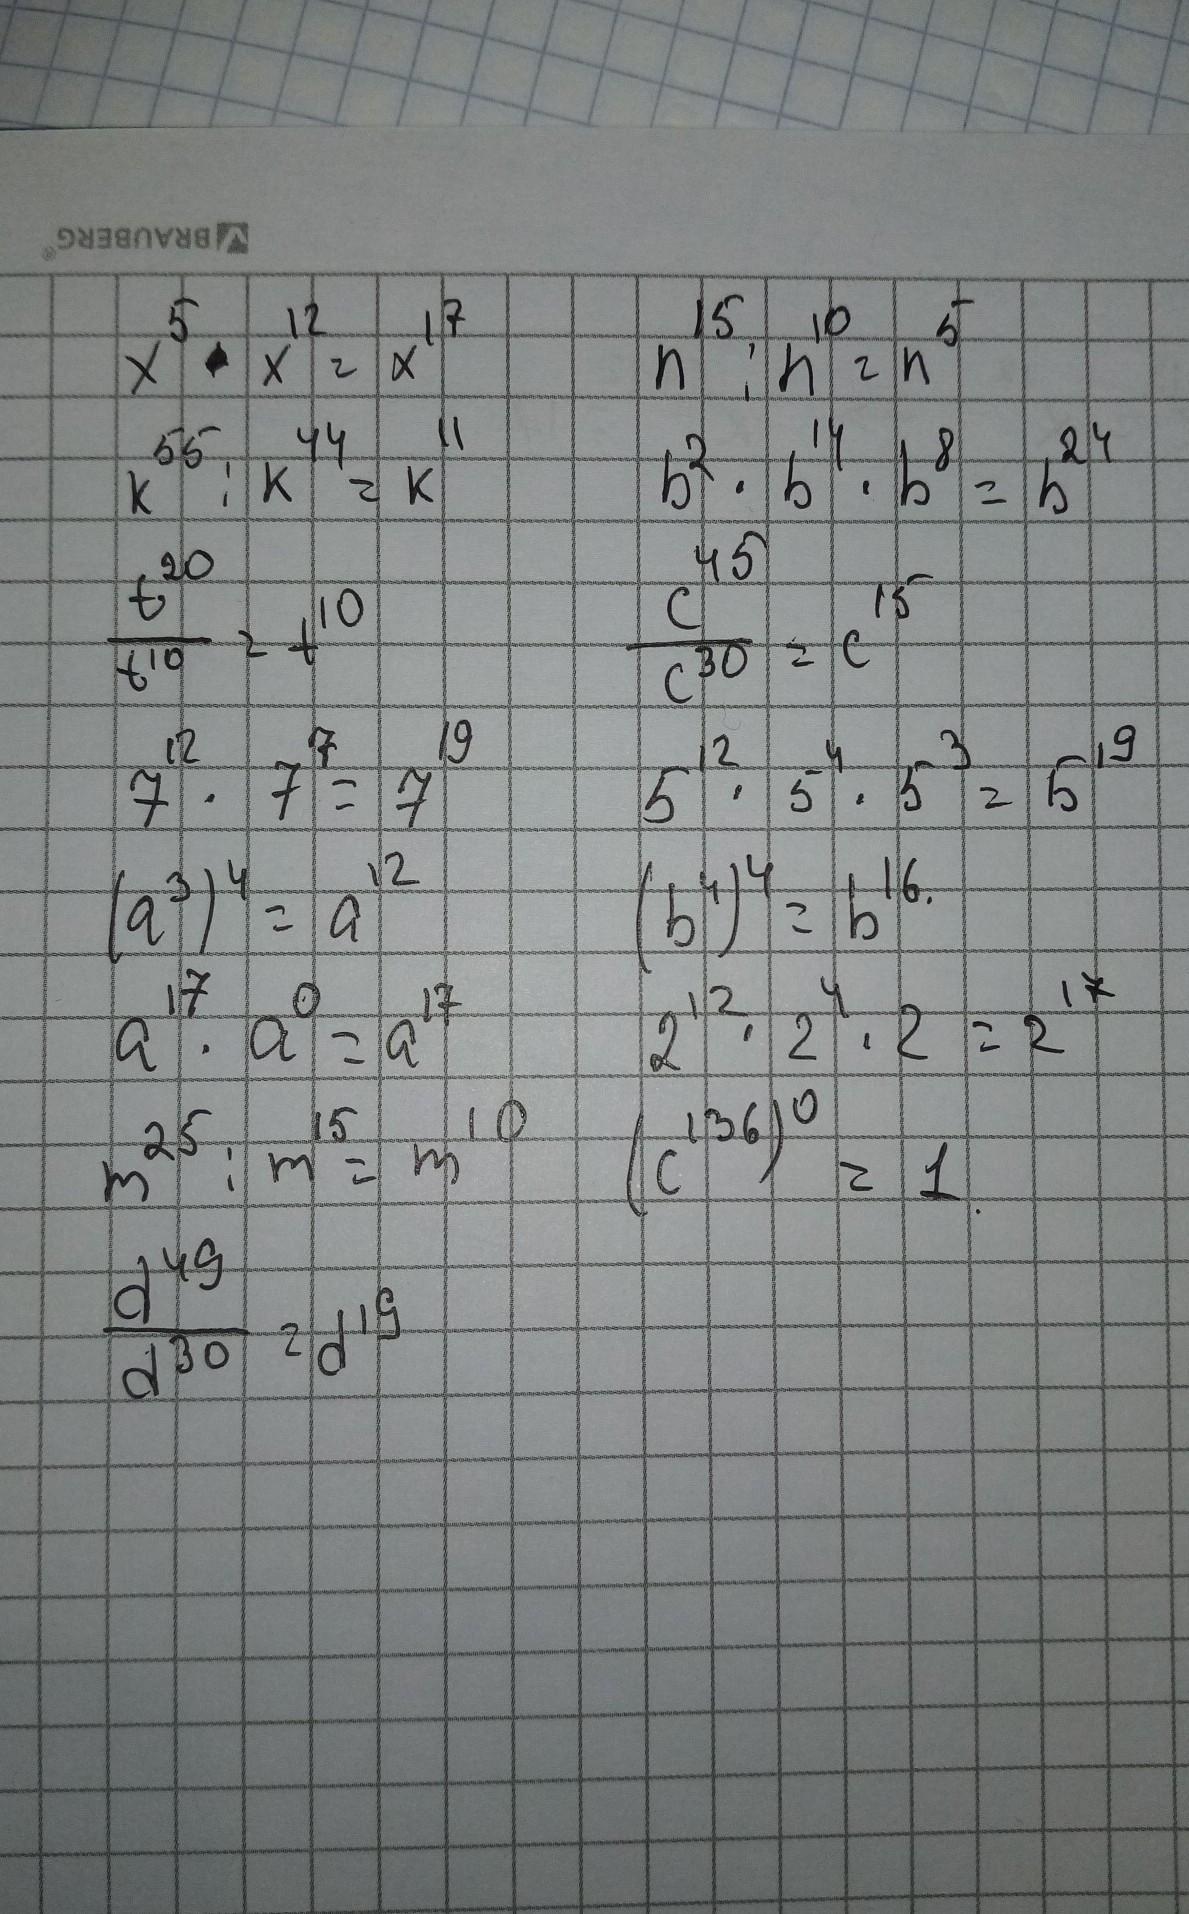 BRAUBERG®
x⁵ · x¹² = x¹⁷
n¹⁵ : n¹⁰ = n⁵
k⁵⁵ : k⁴⁴ = k¹¹
b² · b¹⁴ · b⁸ = b²⁴
t²⁰/t¹⁰ = t¹⁰
c⁴⁵/c³⁰ = c¹⁵
7¹² · 7⁷ = 7¹⁹
5¹² · 5⁴ · 5³ = 5¹⁹
(a³)⁴ = a¹²
(b⁴)⁴ = b¹⁶.
a¹⁷ · a⁰ = a¹⁷
2¹² · 2⁴ · 2 = 2¹⁷
m²⁵ : m¹⁵ = m¹⁰
(c¹³⁶)⁰ = 1.
d⁴⁹/d³⁰ = d¹⁹